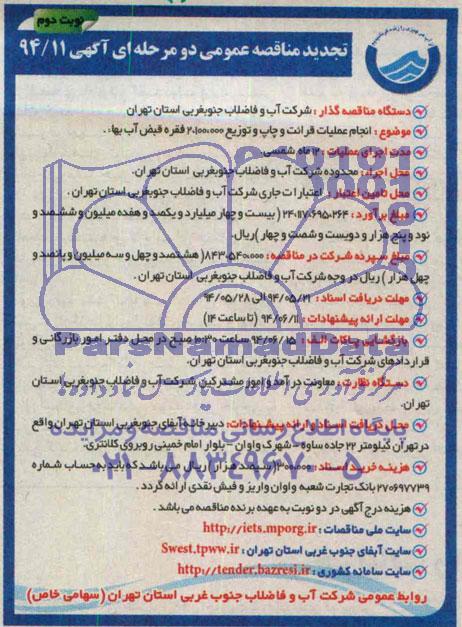 نوبت دوم
تجدید مناقصه عمومی دو مرحله ای آگهی ۹۴/۱۱
دستگاه مناقصه گذار : شرکت آب و فاضلاب جنوبغربی استان تهران
موضوع : انجام عملیات قرائت و چاپ و توزیع ۲،۱۰۰،۰۰۰ فقره قبض آب بهاء.
مدت اجرای عملیات : ۱۲ ماه شمسی.
محل اجراء : محدوده شرکت آب و فاضلاب جنوبغربی استان تهران.
محل تامین اعتبار : اعتبارات جاری شرکت آب و فاضلاب جنوبغربی استان تهران .
مبلغ برآورد : ۲۴،۱۱۷،۶۹۵،۲۶۴ ( بیست و چهار میلیارد و یکصد و هفده میلیون و ششصد و
نود و پنج هزار و دویست و شصت و چهار )ریال.
مبلغ سپرده شرکت در مناقصه : ۸۴۳،۵۴۰،۰۰۰( هشتصد و چهل و سه میلیون و پانصد و
چهل هزار ) ریال در وجه شرکت آب و فاضلاب جنوبغربی استان تهران .
مهلت دریافت اسناد : ۹۴/۰۵/۲۱ الی ۹۴/۰۵/۲۸
مهلت ارائه پیشنهادات : ۹۴/۰۶/۱۱ (تا ساعت ۱۴)
بازگشایی پاکات الف : ۹۴/۰۶/۱۵ ساعت ۱۰:۳۰ صبح در محل دفتر امور بازرگانی و
قراردادهای شرکت آب و فاضلاب جنوبغربی استان تهران.
دستگاه نظارت : معاونت درآمد و امور مشترکین شرکت آب و فاضلاب جنوبغربی استان
تهران.
محل دریافت اسناد و ارائه پیشنهادات : دبیرخانه آبفای جنوبغربی استان تهران واقع
در تهران کیلومتر ۲۲ جاده ساوه - شهرک واوان - بلوار امام خمینی روبروی کلانتری.
هزینه خرید اسناد : ۳۰۰،۰۰۰( سیصد هزار ) ریال می باشد که باید به حساب شماره
۲۷۰۶۹۷۷۳۹ بانک تجارت شعبه واوان واریز و فیش نقدی ارائه گردد .
هزینه درج آگهی در دو نوبت به عهده برنده مناقصه می باشد .
سایت ملی مناقصات : http://iets.mporg.ir
سایت آبفای جنوب غربی استان تهران : Swest.tpww.ir
سایت سامانه کشوری : http://tender.bazresi.ir
روابط عمومی شرکت آب و فاضلاب جنوب غربی استان تهران (سهامی خاص)
ParsNamadData
پایگاه اطلاع رسانی مناقصه و مزایده
۰۲۱-۸۸۳۴۹۶۷۰-۵